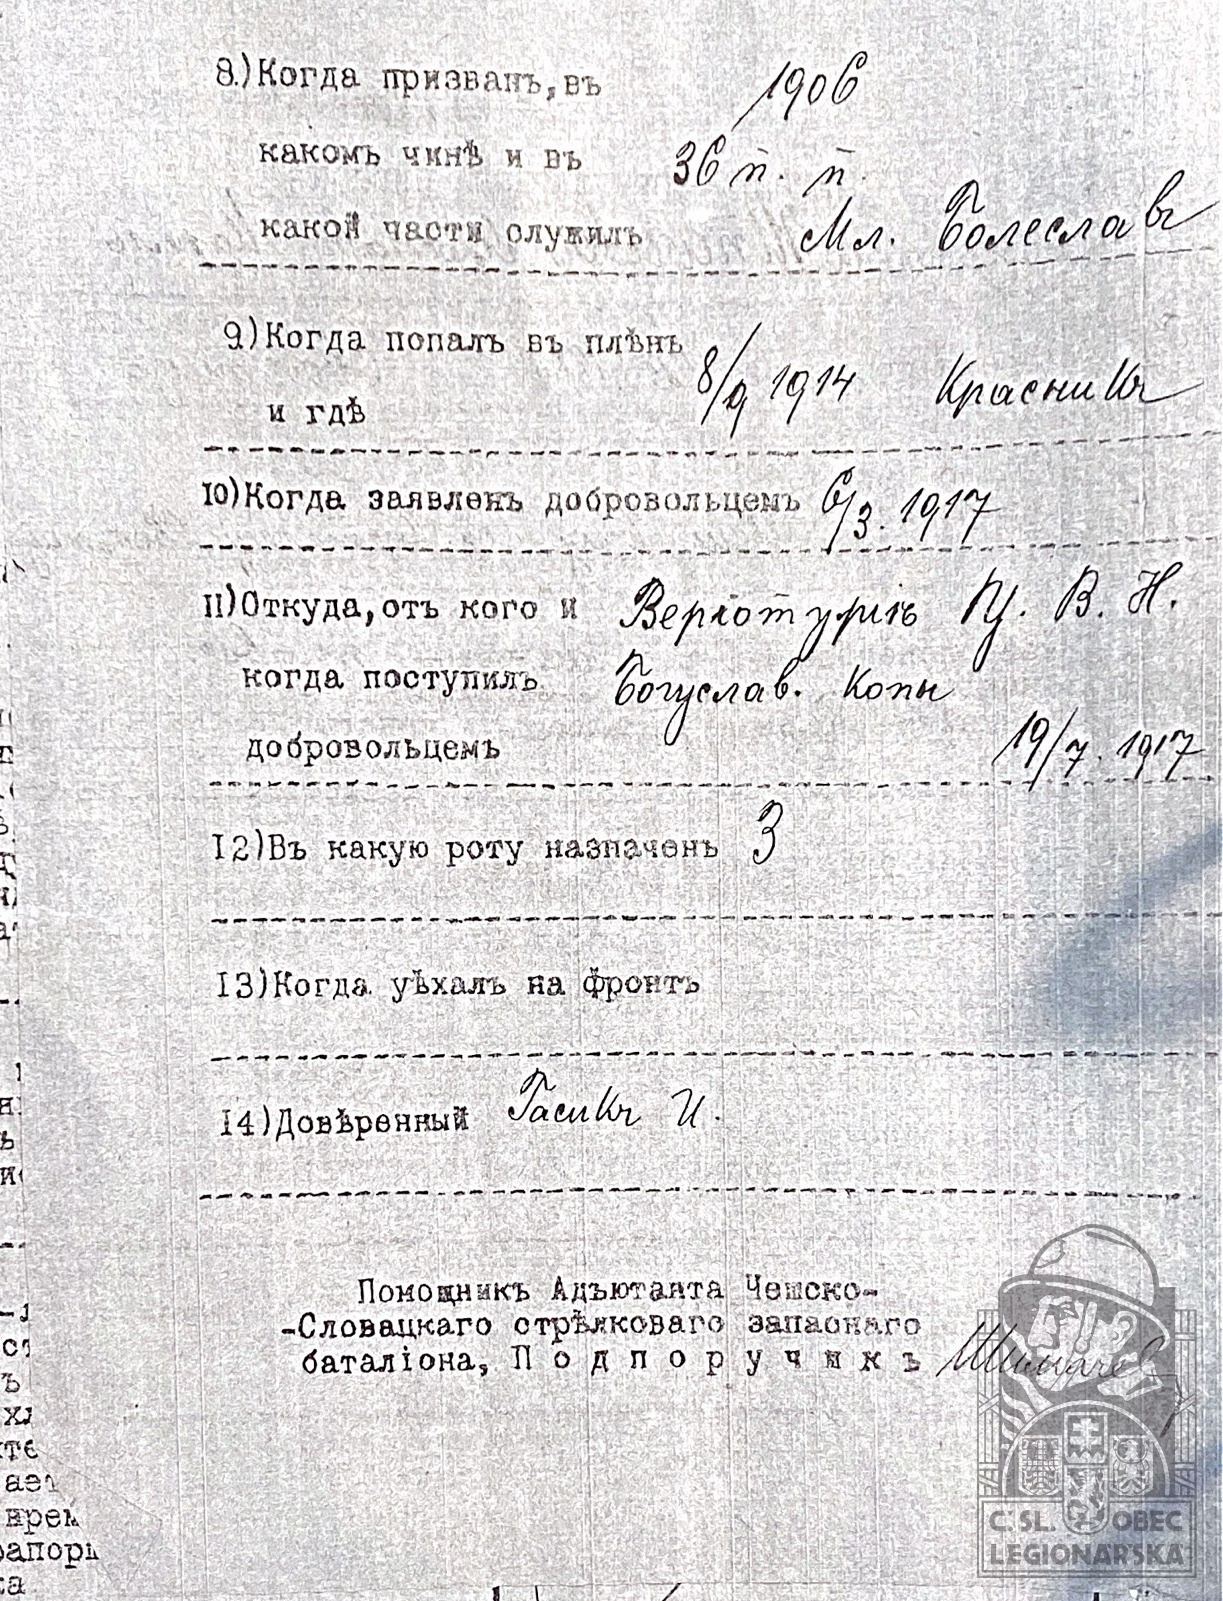 8.)Когда призванъ,въ 1906
какомъ чинѣ и въ 36 п. п.
какой части служилъ Мл. Болеславъ
9)Когда попалъ въ плѣнъ
и гдѣ 8/9 1914 Красникъ
10)Когда заявленъ добровольцемъ 6/3. 1917
11)Откуда,отъ кого и Верхотурiе Ц. В. Н.
когда поступилъ Богуслав. копи
добровольцемъ 19/7. 1917
12)Въ какую роту назначенъ 3
13)Когда уѣхалъ на фронтъ
14)Довѣренный Гасикъ И.
Помощникъ Адъютанта Чешско-
-Словацкаго стрѣлковаго запаснаго
баталiона, Подпоручикъ
Č SL. OBEC
LEGIONÁŘSKÁ